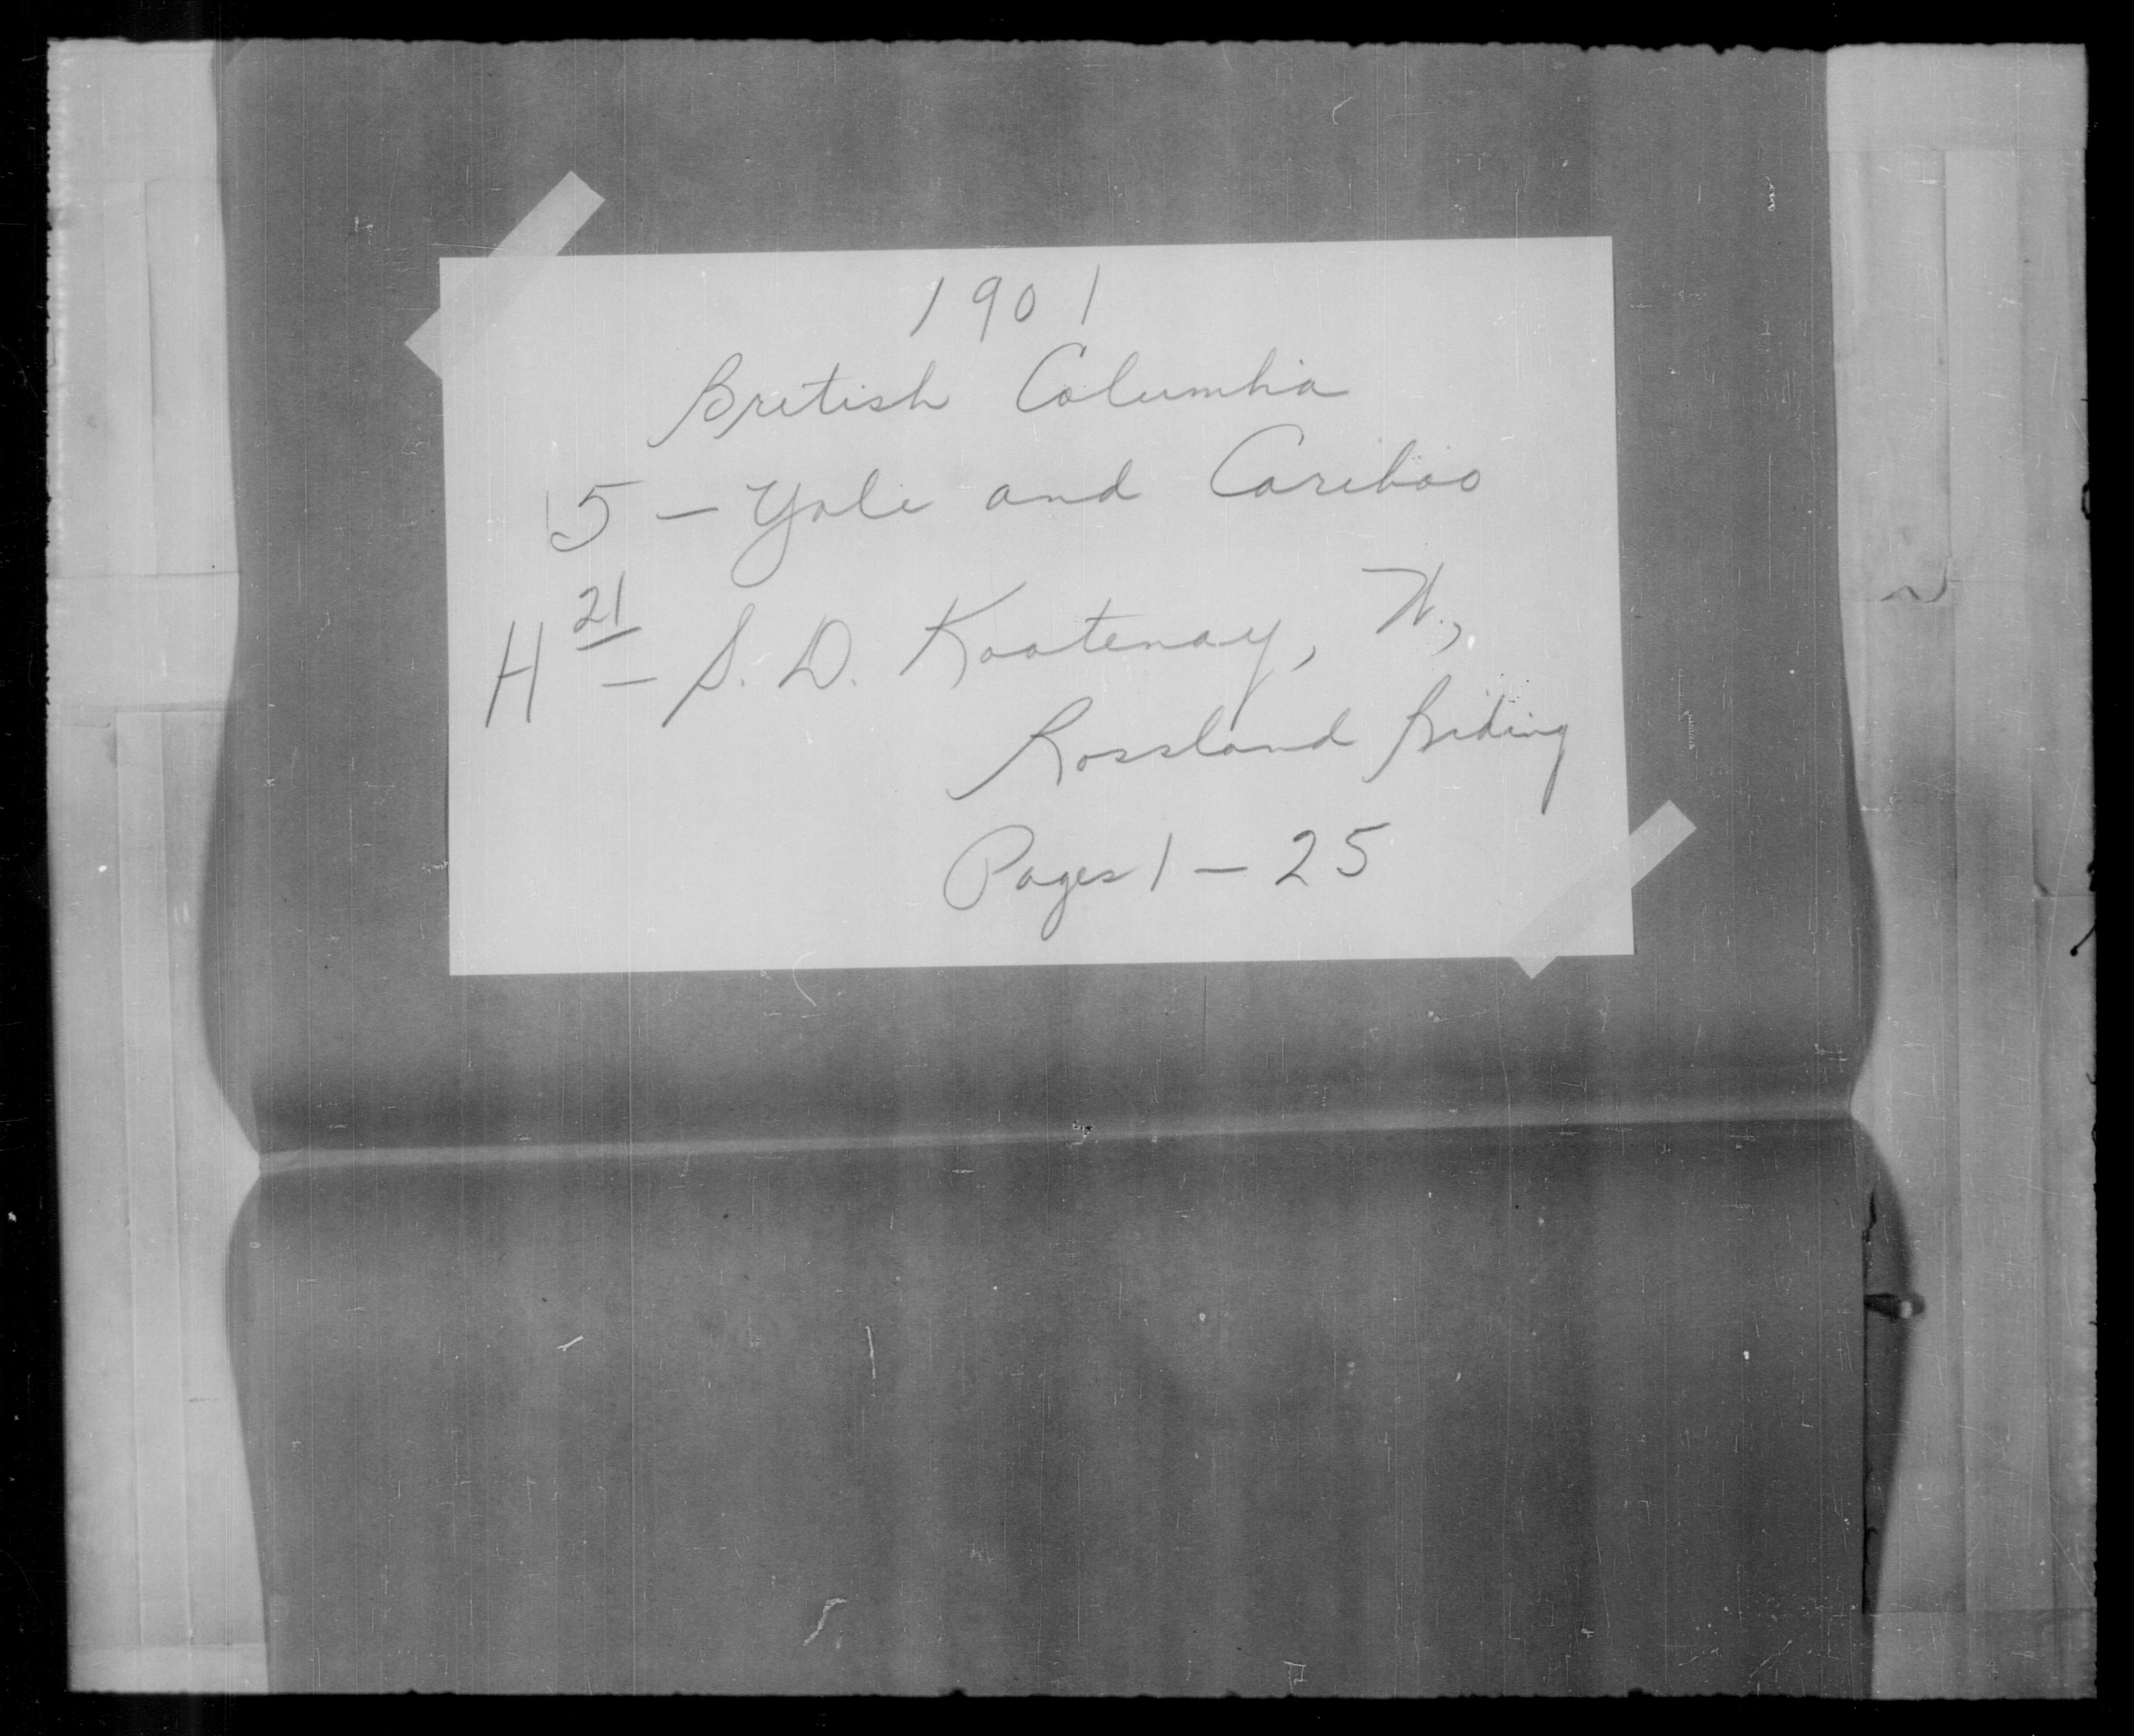 1901
British Columbia
5 - Yale and Cariboo
H 21 - S. D. Kootenay, W.,
Rossland Riding
Pages 1 - 25